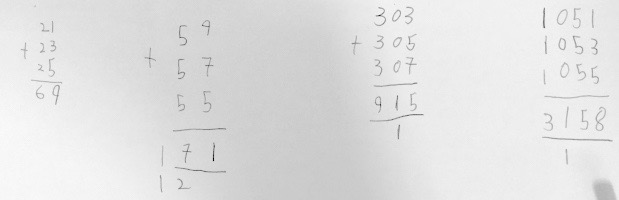 21
+ 23
25
69
59
+ 57
55
171
12
303
+ 305
307
915
1
1051
1053
1055
3158
1